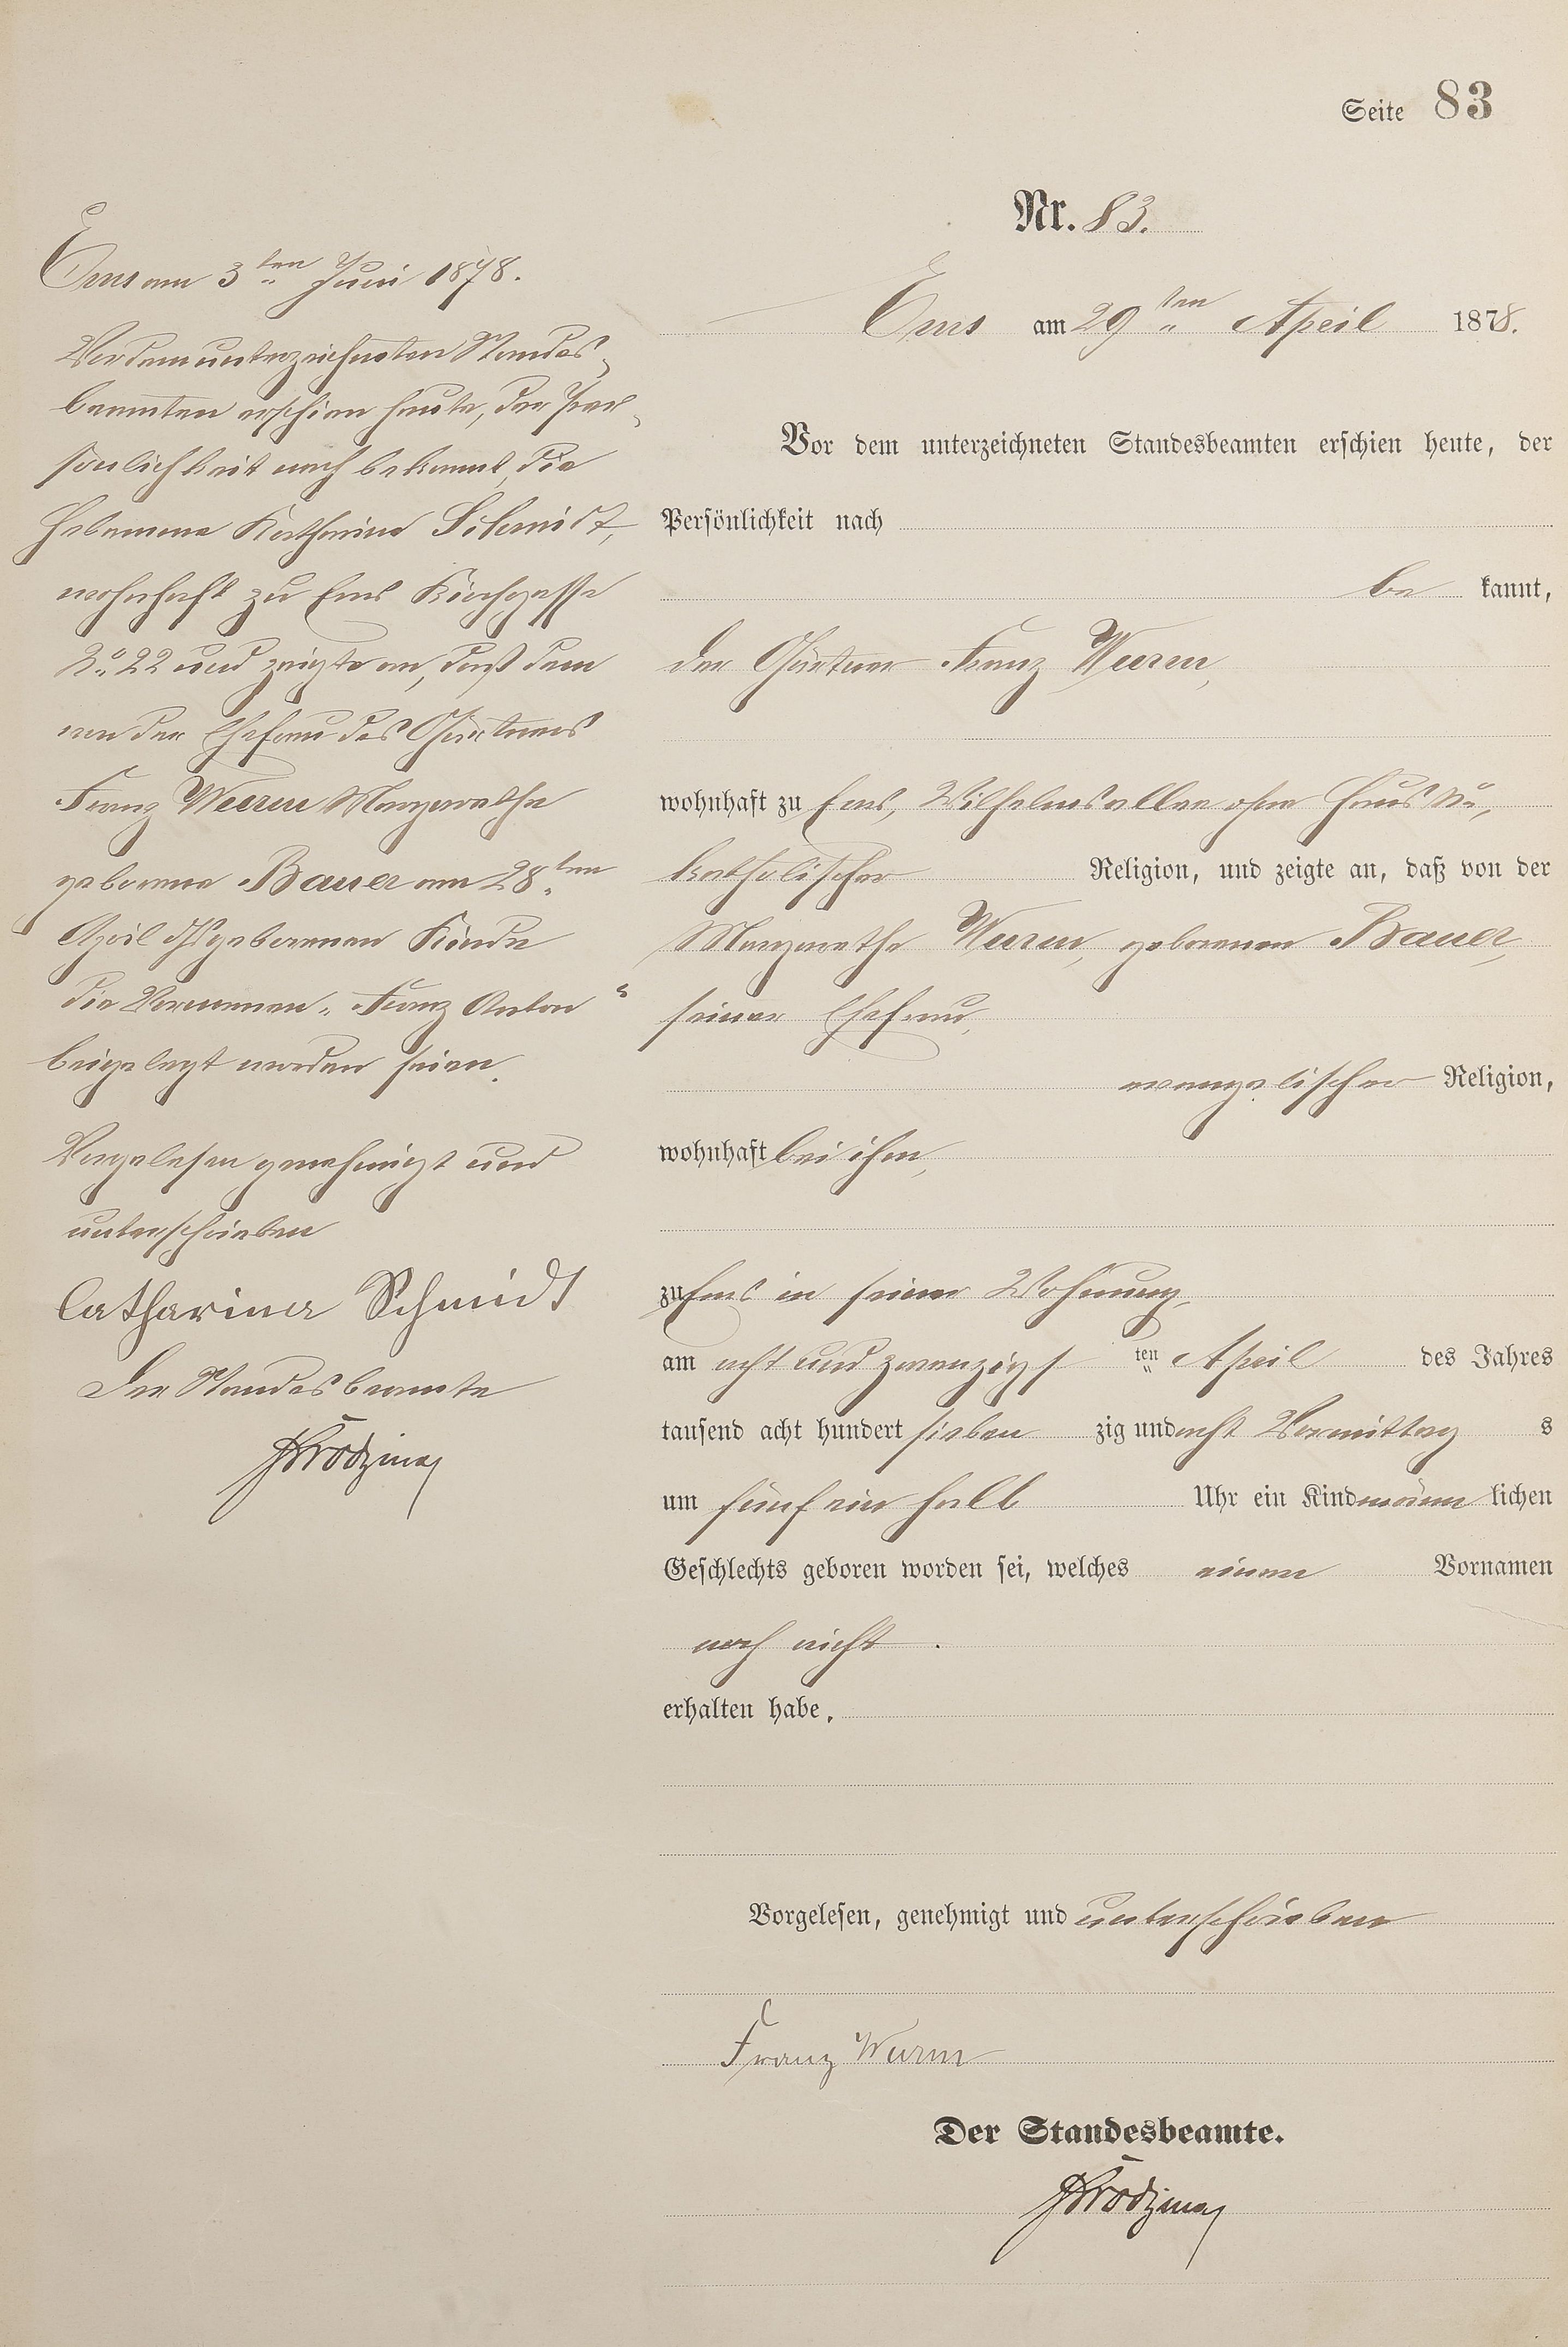 Seite 83
Nr. 83.
Ems am 29ten April 1878.
Vor dem unterzeichneten Standesbeamten erschien heute, der
Persönlichkeit nach
be kannt,
der Gärtner Franz Wurm,
wohnhaft zu Ems, Wilhelmsallee ohne Haus No,
katholischer Religion, und zeigte an, daß von der
Margarethe Wurm, geborenen Bauer,
seiner Ehefrau,
evangelischer Religion,
wohnhaft bei ihm,
zu Ems in seiner Wohnung,
am acht und zwanzigs ten April des Jahres
tausend acht hundert sieben zig und acht Vormittag s
um fünf ein halb Uhr ein Kind männ lichen
Geschlechts geboren worden sei, welches einen Vornamen
noch nicht.
erhalten habe.
Vorgelesen, genehmigt und unterschrieben
Franz Wurm
Der Standesbeamte.
Ems am 3ten Juni 1878.
Vor dem unterzeichneten Standes-
beamten erschien heute, der Per-
sönlichkeit nach bekannt, die
Hebamme Katharina Schmidt,
wohnhaft zu Ems Kirchgasse
No 22 und zeigte an, daß dem
von der Ehefrau des Gärtners
Franz Wurm Margarethe
geborene Bauer am 28ten
April geborenen Kinde
die Vornamen „Franz Anton“
beigelegt worden seien.
Vorgelesen genehmigt und
unterschrieben
Catharina Schmidt
Der Standesbeamte